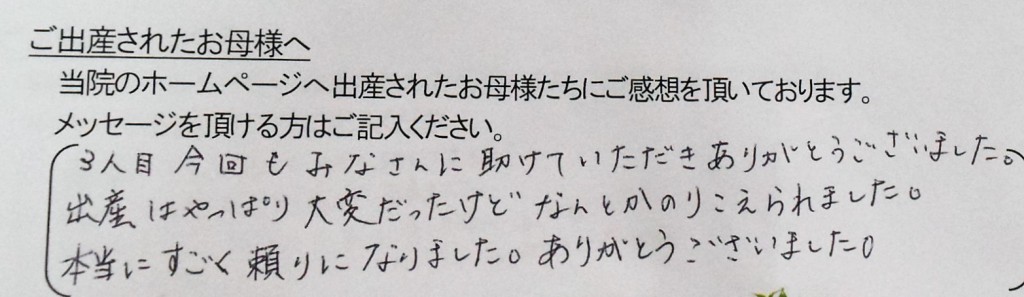 ご出産されたお母様へ
当院のホームページへ出産されたお母様たちにご感想を頂いております。
メッセージを頂ける方はご記入ください。
3人目 今回も みなさんに 助けていただき ありがとうございました。
出産はやっぱり 大変だったけど なんとかのりこえられました。
本当に すごく 頼りに なりました。ありがとうございました。